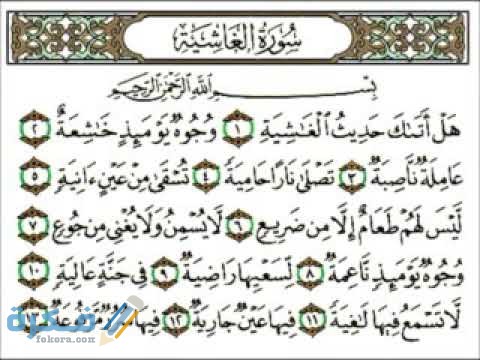 سُورَةُ الغَاشِيَةِ
بِسْمِ اللَّهِ الرَّحْمَٰنِ الرَّحِيمِ
هَلْ أَتَىٰكَ حَدِيثُ الْغَٰشِيَةِ ١ وُجُوهٌ يَوْمَئِذٍ خَٰشِعَةٌ ٢
عَامِلَةٌ نَّاصِبَةٌ ٣ تَصْلَىٰ نَارًا حَامِيَةً ٤ تُسْقَىٰ مِنْ عَيْنٍ ءَانِيَةٍ ٥
لَّيْسَ لَهُمْ طَعَامٌ إِلَّا مِن ضَرِيعٍ ٦ لَّا يُسْمِنُ وَلَا يُغْنِي مِن جُوعٍ ٧
وُجُوهٌ يَوْمَئِذٍ نَّاعِمَةٌ ٨ لِّسَعْيِهَا رَاضِيَةٌ ٩ فِي جَنَّةٍ عَالِيَةٍ ١٠
لَّا تَسْمَعُ فِيهَا لَٰغِيَةً ١١ فِيهَا عَيْنٌ جَارِيَةٌ ١٢ فِيهَا سُرُرٌ مَّرْفُوعَةٌ ١٣
فكرة
fokora.com